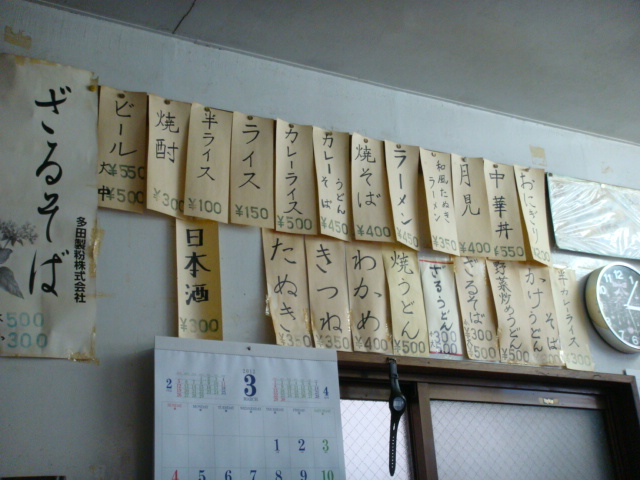 ざるそば
多田製粉株式会社
500
300
ビール
大¥550
中¥500
焼酎
¥300
半ライス
¥100
ライス
¥150
カレーライス
¥500
カレー
うどん
そば
¥450
焼そば
¥400
ラーメン
¥450
和風たぬき
ラーメン
¥350
月見
¥400
中華丼
¥550
おにぎり
日本酒
¥300
たぬき
¥350
きつね
¥350
わかめ
¥400
焼うどん
¥500
ざるうどん
300
500
ざるそば
300
500
野菜炒め
うどん
¥500
かけ
うどん
そば
半カレーライス
300
2
3
4
1
2
3
4
5
6
7
8
9
10